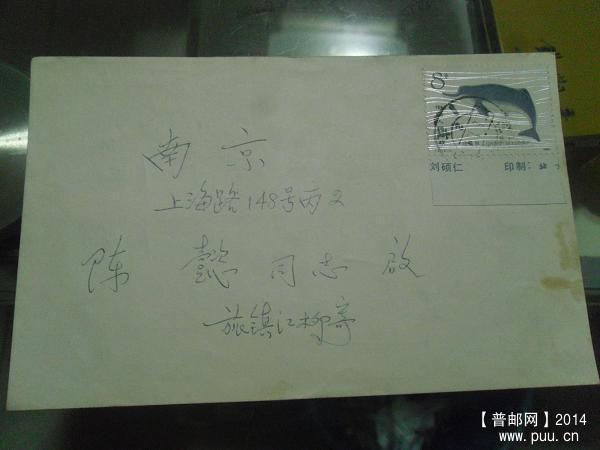 8
刘硕仁 印制：北
南京
上海路148号丙2
陈懿同志 启
旅镇江柳寄
【普邮网】2014
www.puu.cn